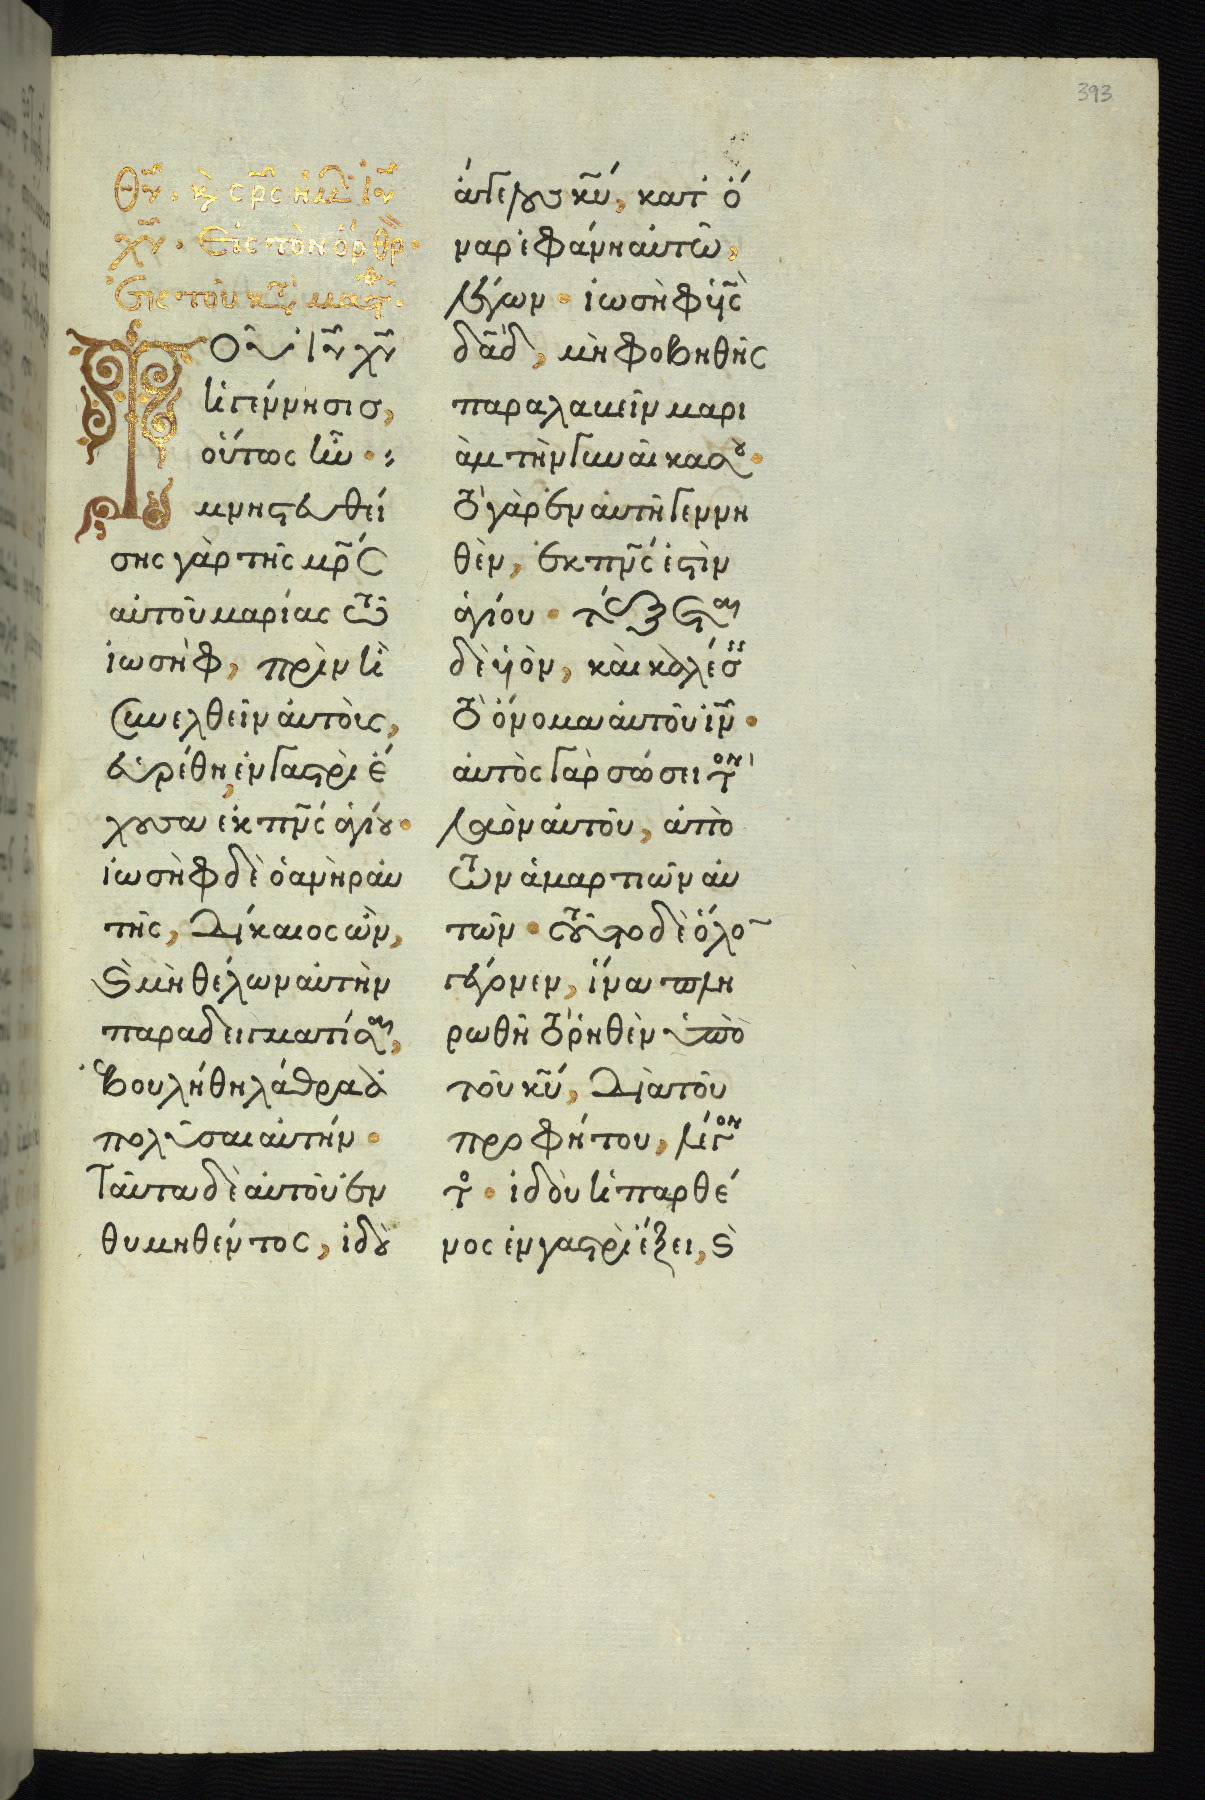 393
Θῦν. κ(αὶ) σρ̅ς ἡμῶ(ν) Ἰῦ
χῦ. Εἰς τὸν ὄρθρ(ον)
ἐκ τοῦ κατ(ὰ) ματθ(αῖον).
Τοῦ ἰῦ χῦ
ἡ γέννησις,
οὕτως ἦν·
μνηστευθεί
σης γὰρ τῆς μρ̅ς
αὐτοῦ μαρίας τῶ
ἰωσὴφ, πρὶν ἢ
συνελθεῖν αὐτοὺς,
εὑρέθη ἐν γαστρὶ ἔ
χουσα ἐκ πν̅ς ἁγίου·
ἰωσὴφ δὲ ὁ ἀνὴρ αὐ
τῆς, δίκαιος ὢν,
κ(αὶ) μὴ θέλων αὐτὴν
παραδειγματίσαι,
ἐβουλήθη λάθρα ἀ
πολῦσαι αὐτήν·
Ταῦτα δὲ αὐτοῦ ἐν
θυμηθέντος, ἰδοὺ
ἄγγελος κῦ, κατ' ὄ
ναρ ἐφάνη αὐτῶ,
λέγων· ἰωσὴφ ὑιὸς
δᾱδ, μὴ φοβηθῆς
παραλαβεῖν μαρι
ὰμ τὴν γυναῖκα σου·
τὸ γὰρ ἐν αὐτῆ γεννη
θὲν, ἐκ πν̅ς ἐστὶν
ἁγίου· τέξεται
δὲ ὑιὸν, καὶ καλέσεις
τὸ ὄνομα αὐτοῦ ἰν̅·
αὐτὸς γὰρ σώσει τὸν
λαὸν αὐτοῦ, ἀπὸ
τῶν ἁμαρτιῶν αὐ
τῶν· τοῦτο δὲ ὅλο(ν)
γέγονεν, ἵνα πλη
ρωθῆ τὸ ῥηθὲν ὑπὸ
τοῦ κῦ, διὰ τοῦ
προφήτου, λέγον
τος· ἰδοὺ ἡ παρθέ
νος ἐν γαστρὶ ἕξει, κ(αὶ)